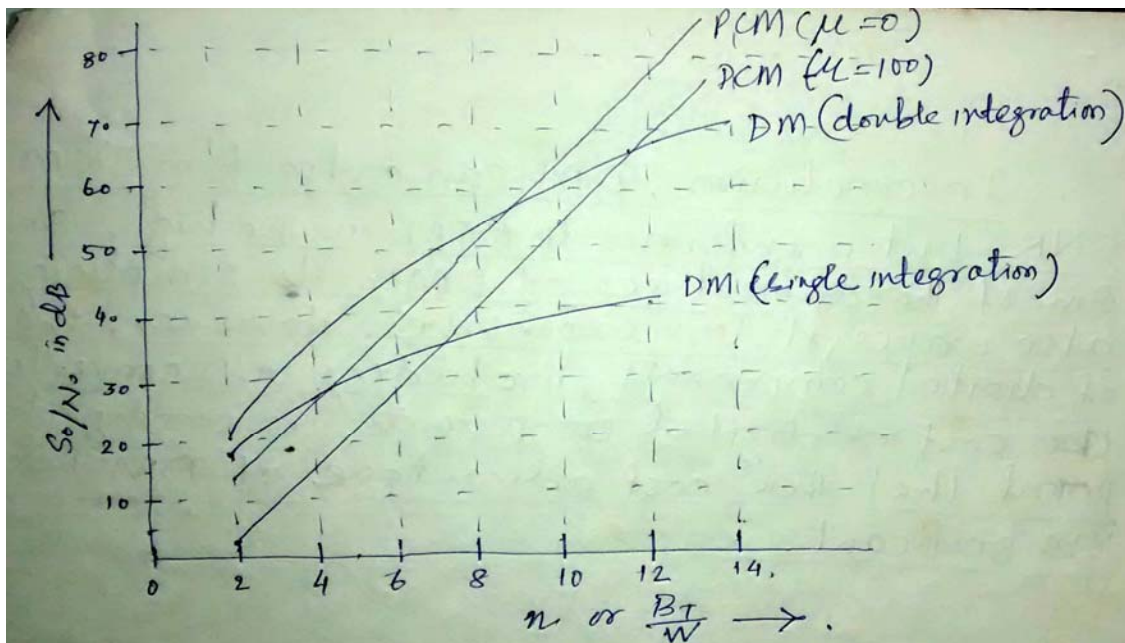 PCM (μ=0)
PCM (μ=100)
DM (double integration)
DM (single integration)
80
70
60
50
40
30
20
10
So/No in dB
0 2 4 6 8 10 12 14.
n or BT/W